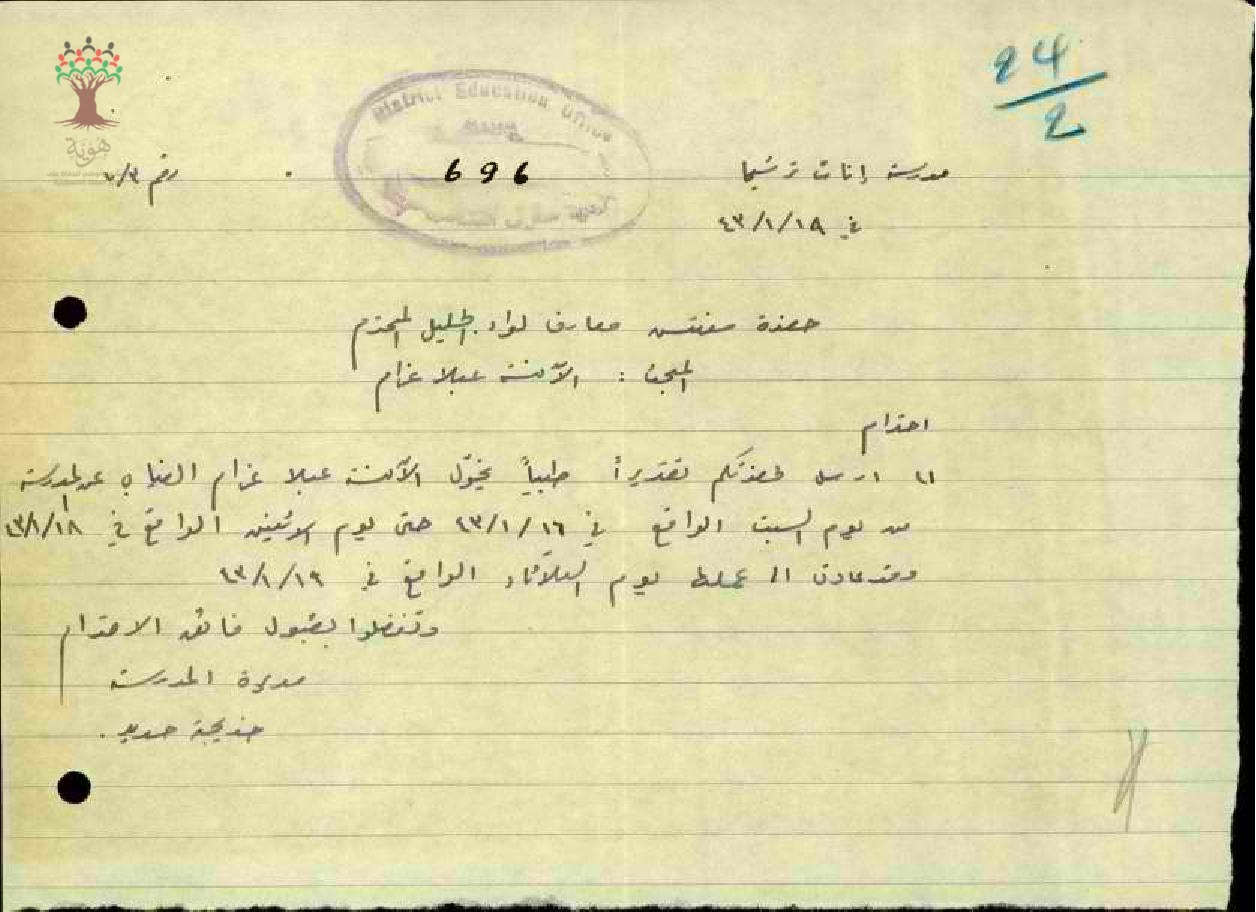 24/2
District Education Office
هوية
696
مدرسة إناث ترشيحا
رقم ٧/٣
في ٤٣/١/١٨
حضرة مفتش معارف لواء الجليل المحترم
المبحث : الآنسة عبلا عزام
احترام
١١ ارسل لحضرتكم تقديراً طبياً يخوّل الآنسة عبلا عزام الغياب عن المدرسة
من يوم السبت الواقع في ٤٣/١/١٦ حتى يوم الاثنين الواقع في ٤٣/١/١٨
وقد عادت الى عملها يوم الثلاثاء الواقع في ٤٣/١/١٩
وتفضلوا بقبول فائق الاحترام
مديرة المدرسة
خديجة حديد .